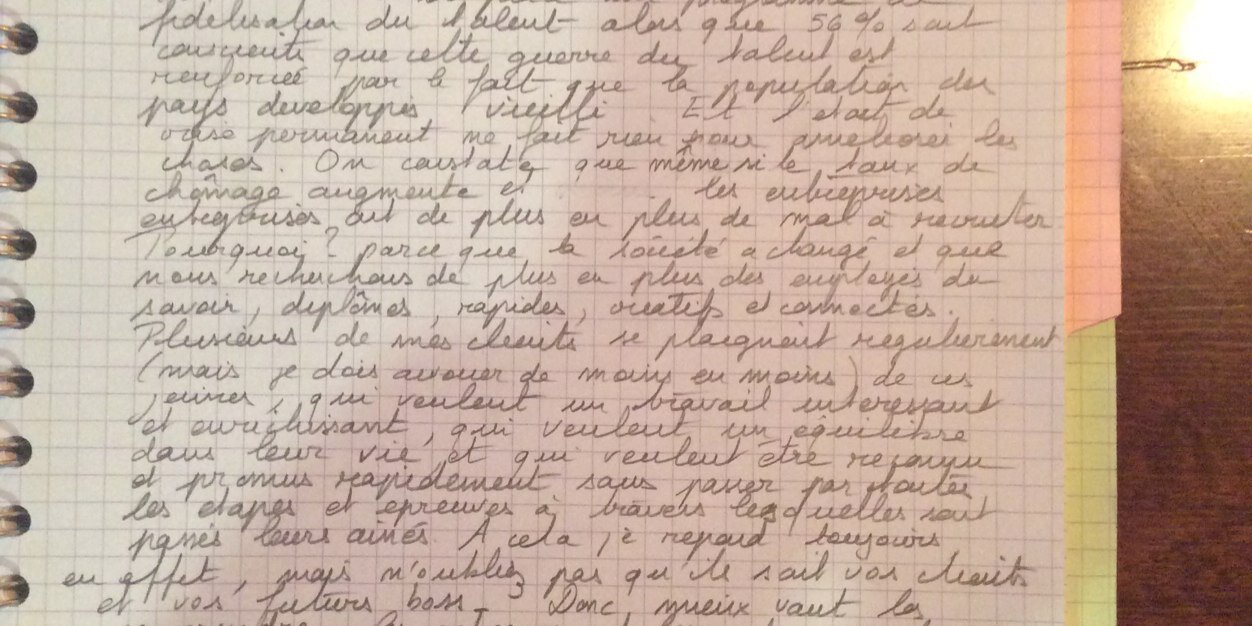 fidelisation du talent alors que 56% sont
conscients que cette guerre du talent est
renforcée par le fait que la population des
pays developpés vieilli Et l'etat de
crise permanent ne fait rien pour ameliorer les
choses. On constate que même si le taux de
chômage augmente et les entreprises
entreprises ont de plus en plus de mal à recruter
Pourquoi? parce que la société a changé et que
nous recherchons de plus en plus des employés du
savoir, diplômés, rapides, créatifs et connectés.
Plusieurs de mes clients se plaignent regulierement
(mais je dois avouer de moins en moins) de ces
jeunes, qui veulent un travail interessant
et enrichissant, qui veulent un equilibre
dans leur vie et qui veulent être reconnu
et promus rapidement sans passer par toutes
les etapes et epreuves à travers lesquelles sont
passés leurs ainés. A cela, je repond toujours
en effet, mais n'oubliez pas qu'ils sont vos clients
et vos futurs boss. Donc, mieux vaut les